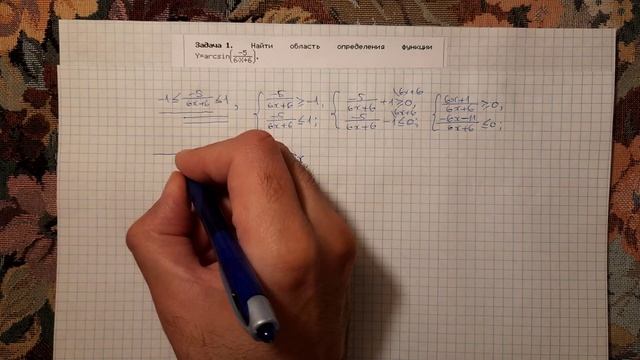 Задача 1. Найти область определения функции
Y=arcsin(-5/(6·x+6)).
-1 ≤ -5/(6x+6) ≤ 1, { -5/(6x+6) ≥ -1, { -5/(6x+6) + 1 ≥ 0, \6x+6 { (6x+1)/(6x+6) ≥ 0,
-5/(6x+6) ≤ 1; -5/(6x+6) - 1 ≤ 0; \6x+6 (-6x-11)/(6x+6) ≤ 0;
x